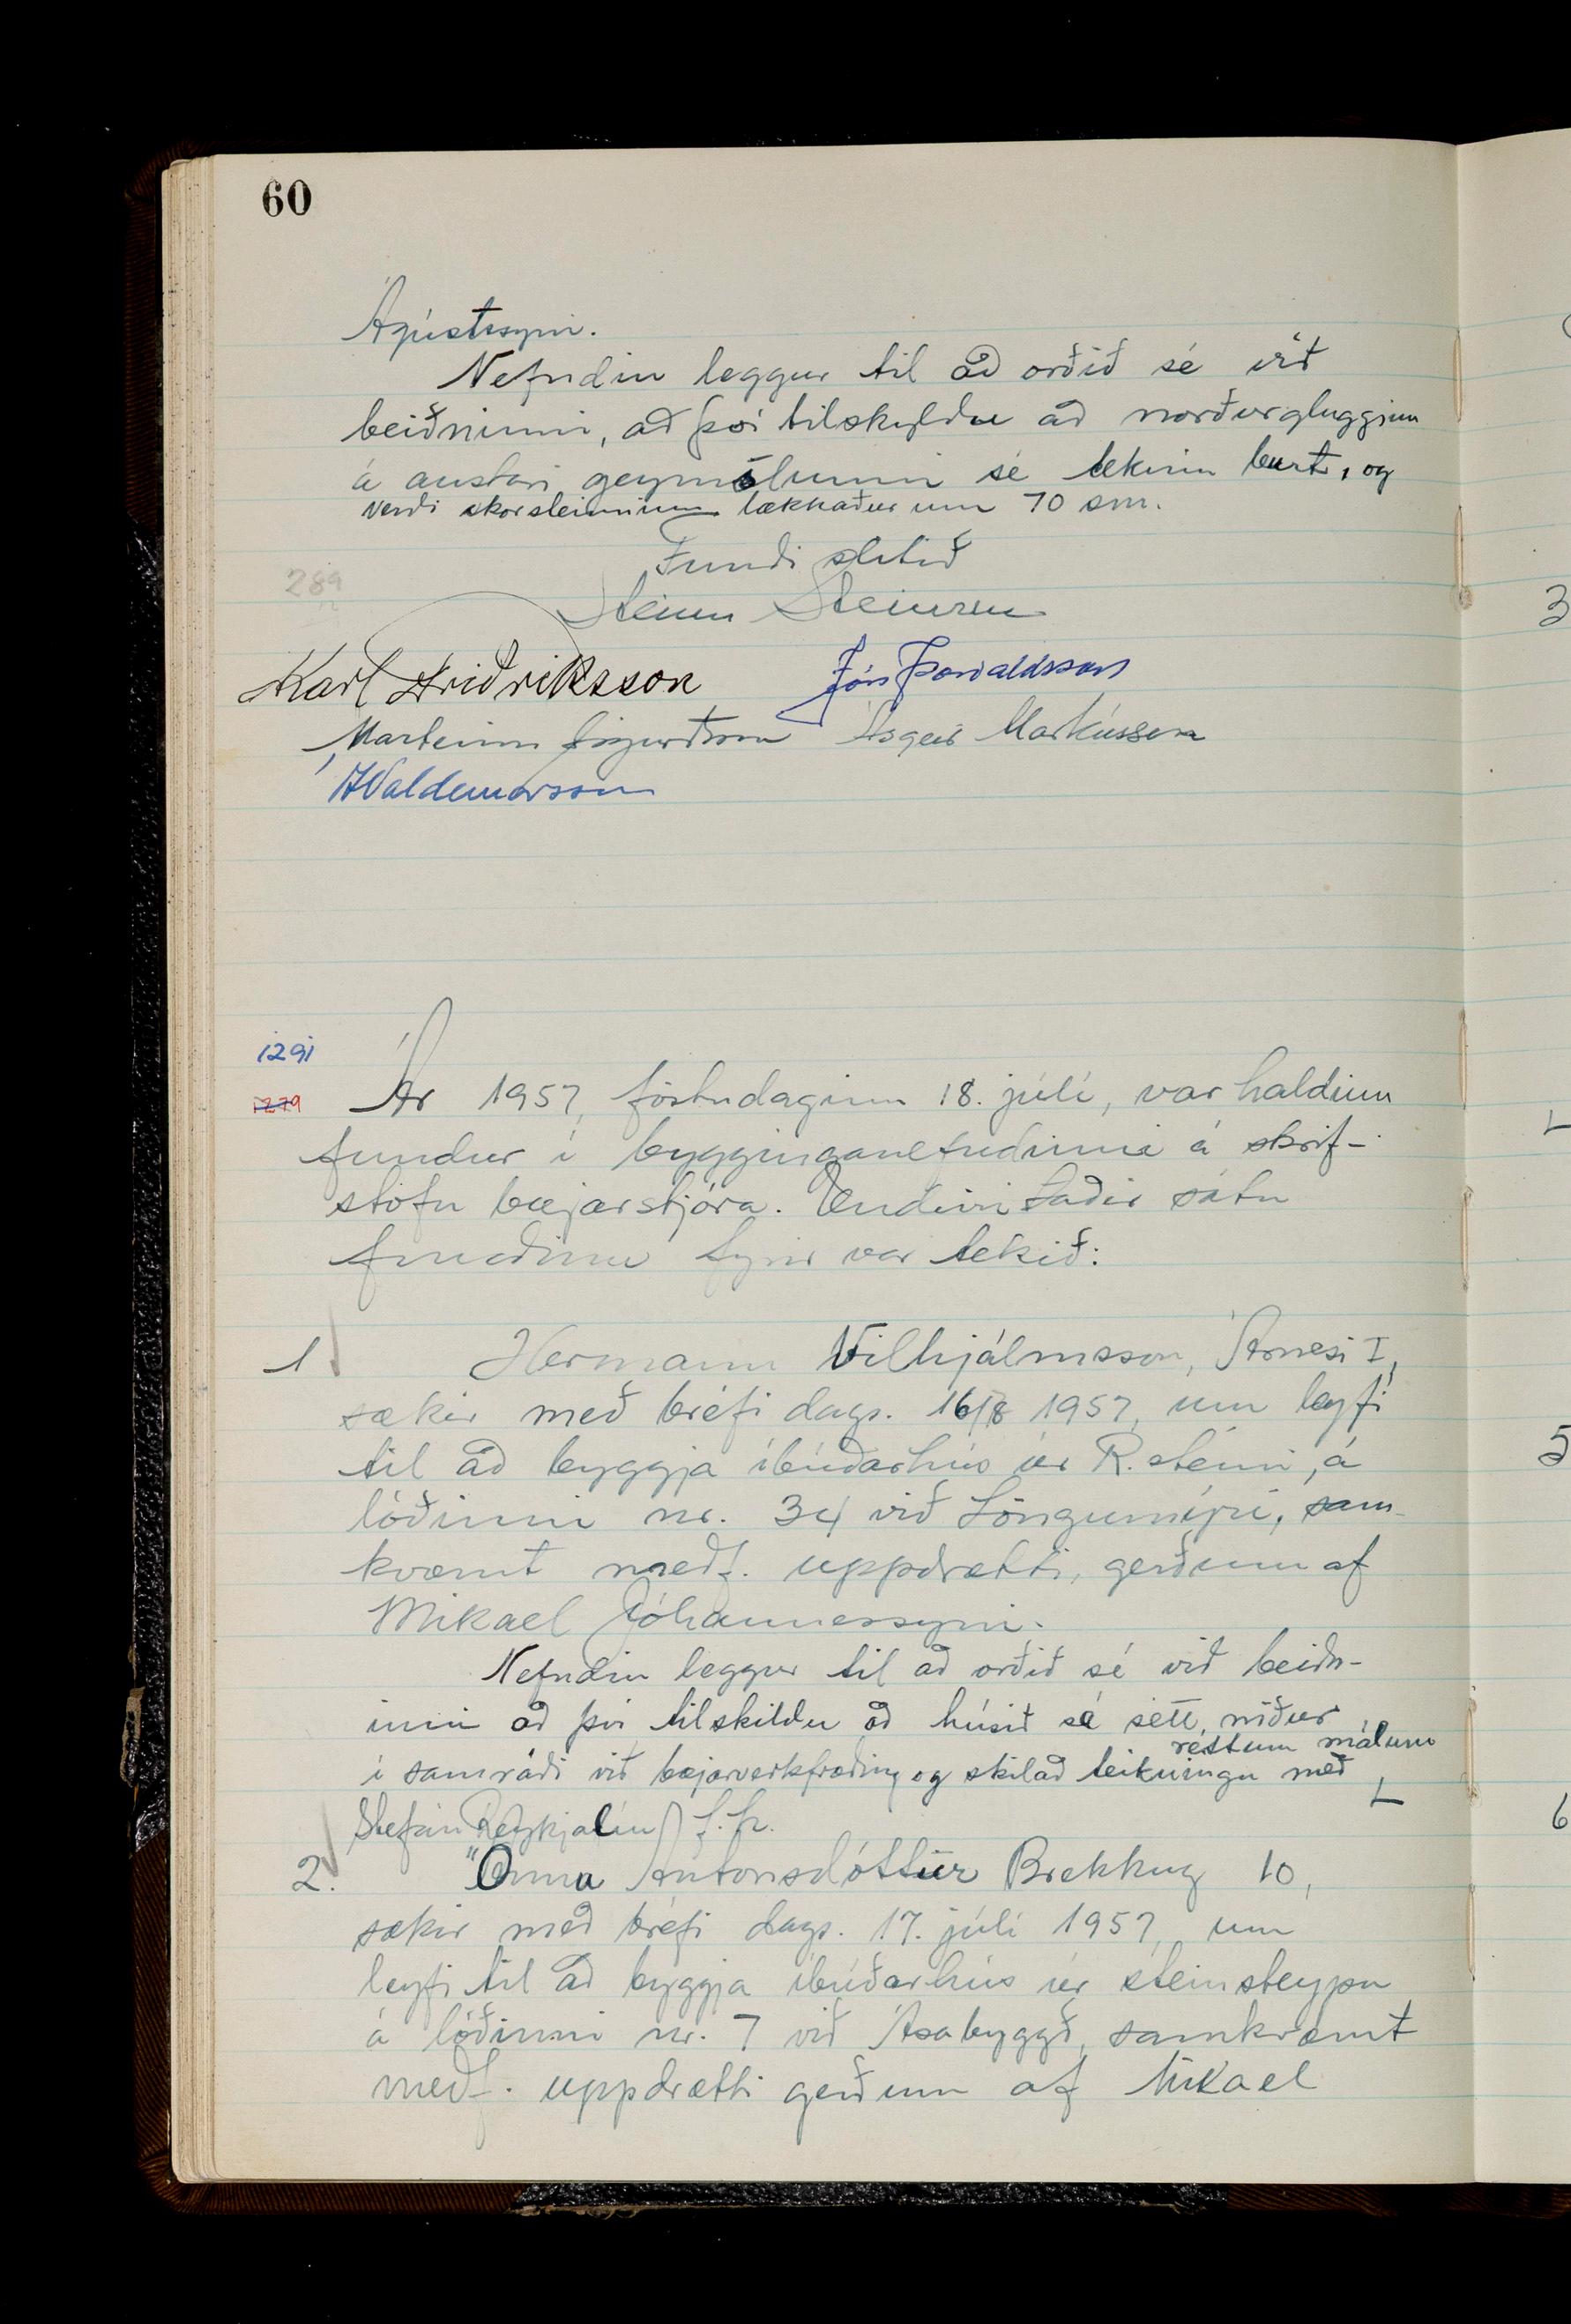 60
Ágústssyni.
Nefndin leggur til að orðið sé við
beiðninni, að því tilskyldu að norðurglugginn
á austari geymslunni sé tekinn burt, og
verði skorsteinninn lækkaður um 70 sm.
Fundi slitið
289
Steinn Steinsen
Karl Friðriksson Jón Þorvaldsson
Marteinn Sigurðsson Ásgeir Markússon
Á Valdemarsson
1291
1279
Ár 1957, föstudaginn 18. júlí, var haldinn
fundur í bygginganefndinni á skrif-
stofu bæjarstjóra. Undirritaðir sátu
fundinn fyrir var tekið:
1 Hermann Vilhjálmsson, Árnesi I,
sækir með bréfi dags. 16/8 1957, um leyfi
til að byggja íbúðarhús úr R.steini, á
lóðinni nr. 34 við Löngumýri, sam-
kvæmt meðf. uppdrætti, gerðum af
Mikael Jóhannessyni.
Nefndin leggur til að orðið sé við beiðn-
inni að því tilskildu að húsið sé sett niður
réttum málum
í samráði við bæjarverkfræðing og skilað teikningu með
Stefán Reykjalín f.h.
2. Önnu Antonsdóttur Brekkug 10,
sækir með bréfi dags. 17. júlí 1957, um
leyfi til að byggja íbúðarhús úr steinsteypu
á lóðinni nr. 7 við Ásabyggð, samkvæmt
meðf. uppdrætti gerðum af Mikael
3
5
6